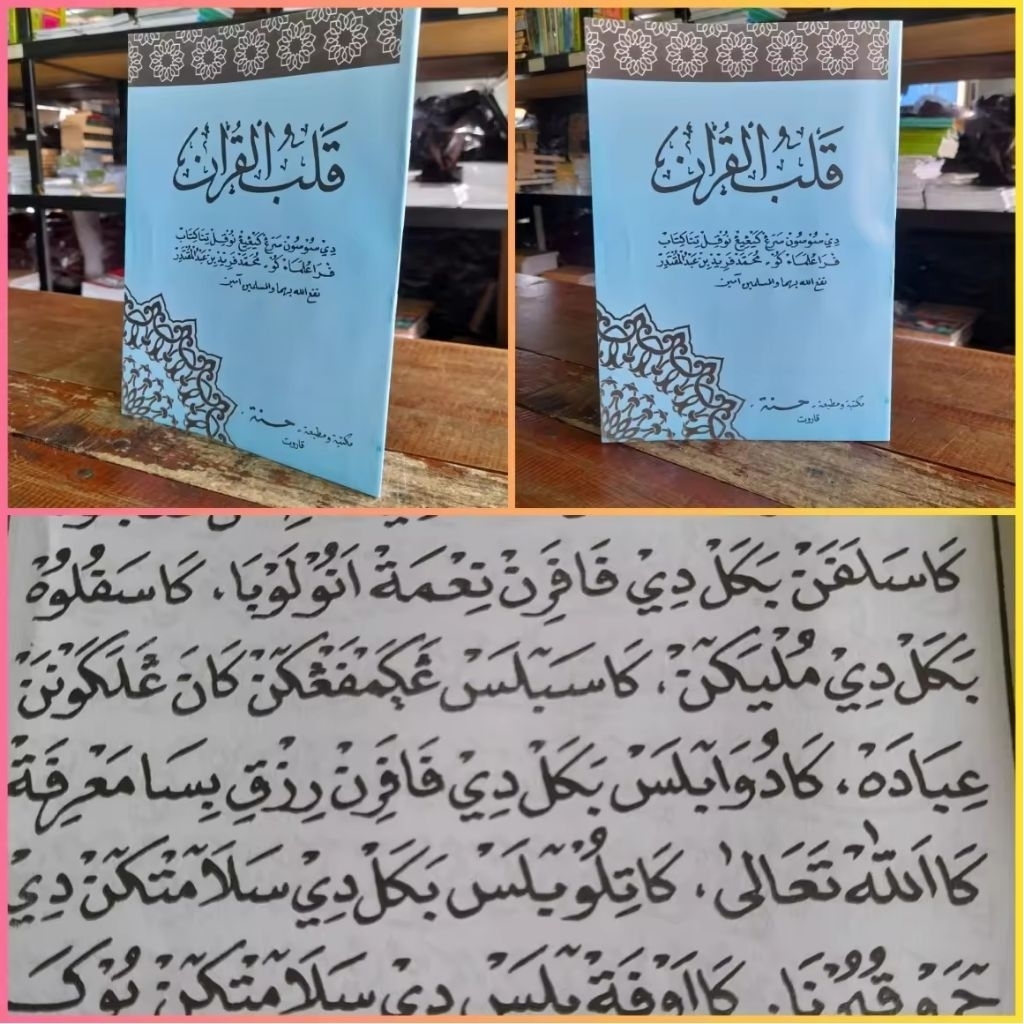 قَلْبُ الْقُرْآنْ
دِيْ سُوْسُوْنْ سَرَڠْ كَيْڠِيْڠْ نُوْقِلْ تِتَا كِتَابْ
فَرَا عُلَمَاءْ كُوْ - مُحَمَّدْ فَرِيْدْ بِنْ عَبْدُ الْمُقْتَدِرْ
نفع الله بهما والمسلمين آمين
مكتبة ومطبعة - حسنة -
قاروت
قَلْبُ الْقُرْآنْ
دِيْ سُوْسُوْنْ سَرَڠْ كَيْڠِيْڠْ نُوْقِلْ تِتَا كِتَابْ
فَرَا عُلَمَاءْ كُوْ - مُحَمَّدْ فَرِيْدْ بِنْ عَبْدُ الْمُقْتَدِرْ
نفع الله بهما والمسلمين آمين
مكتبة ومطبعة - حسنة -
قاروت
كَاسَلَفَنْ بَكَلْ دِيْ فَافَرِنْ نِعْمَةْ اَنُوْ لَوْبَا، كَاسَفُلُوْهْ
بَكَلْ دِيْ مُلْيَكَنْ، كَاسَبَلَسْ ڠَڮَمْفَڠْكَنْ كَانَ ڠَلَكَوْنَنْ
عِبَادَهْ، كَادُوَابَلَسْ بَكَلْ دِيْ فَافَرِنْ رِزْقِ بِسَا مَعْرِفَةْ
كَااللّٰهْ تَعَالىٰ، كَاتِلُوْبَلَسْ بَكَلْ دِيْ سَلَامَتْكَنْ دِيْ
كَااَوْفَةْ بَلَسْ دِيْ سَلَامَتْكَنْ